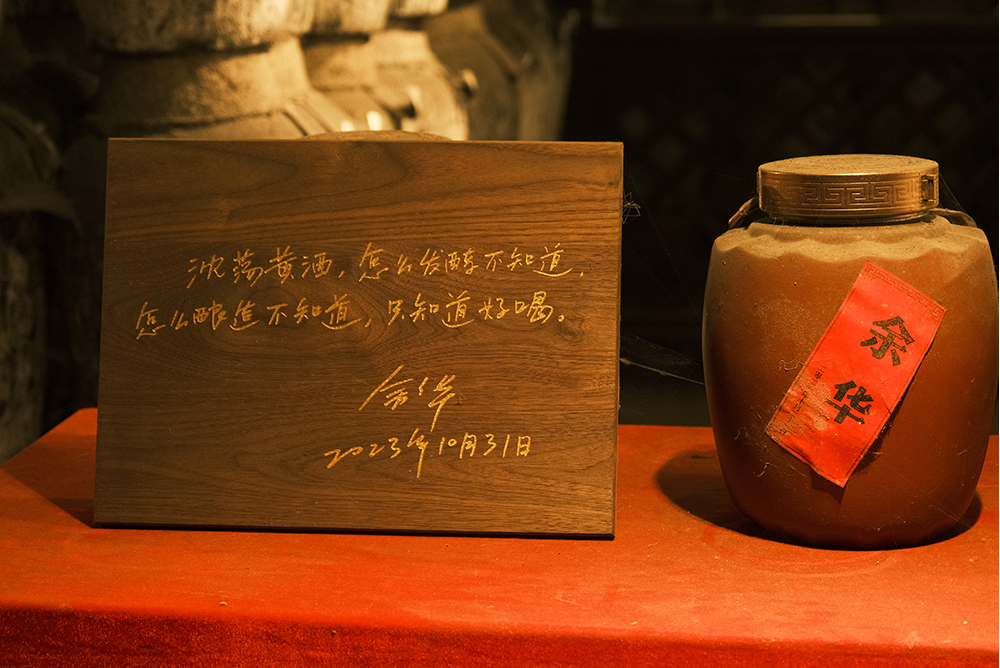 沈荡黄酒，怎么发酵不知道，
怎么酿造不知道，只知道好喝。
余华
2023年10月31日
余
华